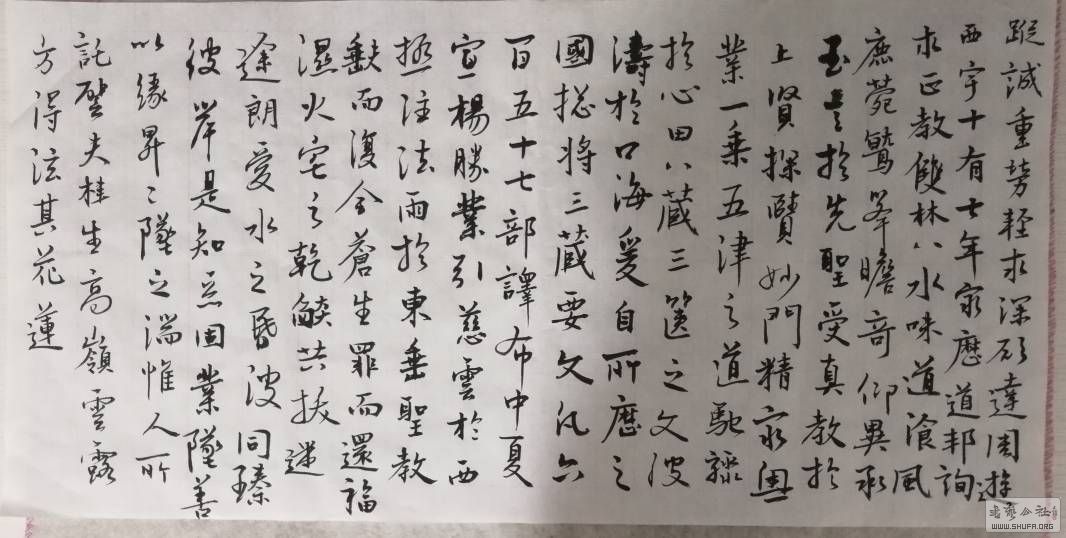 蹤誠重勞輕求深願達周遊
西宇十有七年窮歷道邦詢
求正教雙林八水味道飡風
鹿菀鷲峯瞻奇仰異承
至言於先聖受真教於
上賢探賾妙門精窮奧
業一乘五津之道馳驟
於心田八藏三篋之文波
濤於口海爰自所歷之
國揔將三藏要文凡六
百五十七部譯布中夏
宣楊勝業引慈雲於西
極注法雨於東垂聖教
缺而復全蒼生罪而還福
濕火宅之乾焰共拔迷
途朗愛水之昏波同臻
彼岸是知惡因業墜善
以緣昇〻墜之端惟人所
託譬夫桂生高嶺雲露
方得泫其花蓮
WWW.SHUFA.ORG